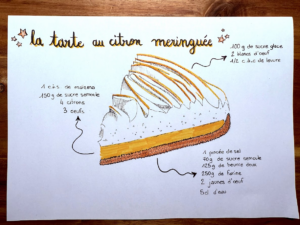 la tarte au citron meringuée
100 g de sucre glace
2 blancs d'oeuf
1/2 c.à.c de levure
1 c.à.s de maïzena
150g de sucre semoule
4 citrons
3 oeufs
1 pincée de sel
40g de sucre semoule
125g de beurre doux
250g de farine
2 jaunes d'oeuf
5cl d'eau